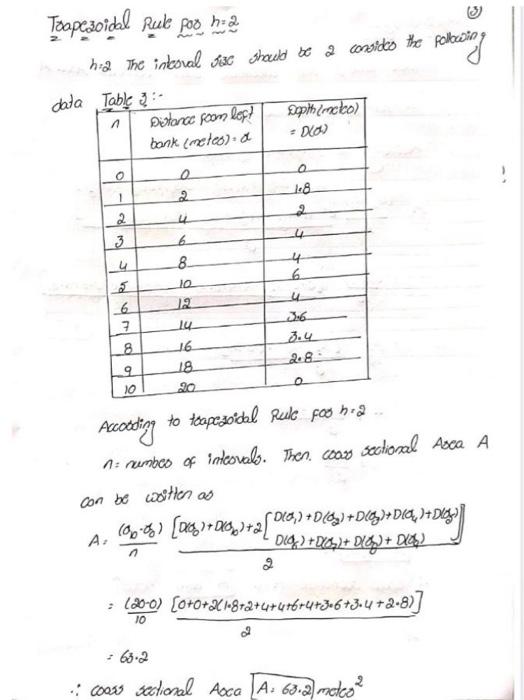 ③
Trapezoidal Rule for h=2
h=2 The interval size should be 2 consider the following
data Table 3:-
n Distance from left bank (meters) = d Depth (meters) = D(d)
0 0 0
1 2 1.8
2 4 2
3 6 4
4 8 4
5 10 6
6 12 4
7 14 3.6
8 16 3.4
9 18 2.8
10 20 0
According to trapezoidal Rule for h=2
n= number of intervals. Then cross sectional Area A
can be written as
A = (d₁₀-d₀)/n [D(d₀)+D(d₁₀)+2[D(d₁)+D(d₂)+D(d₃)+D(d₄)+D(d₅)
D(d₆)+D(d₇)+D(d₈)+D(d₉)]]/2
= (20-0)/10 [0+0+2(1.8+2+4+4+6+4+3.6+3.4+2.8)]/2
= 63.2
∴ cross sectional Area A = 63.2 meters²